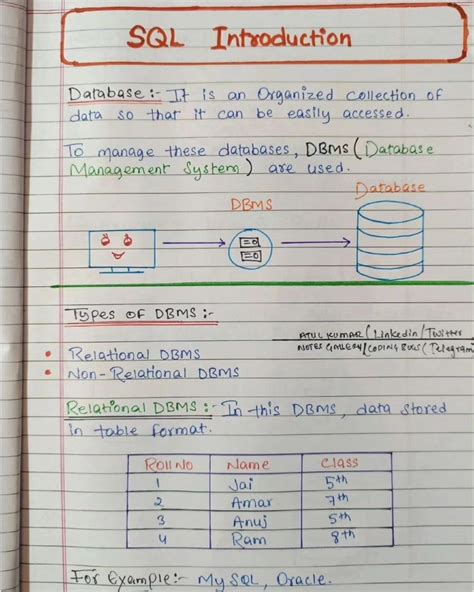 SQL Introduction
Database :- It is an Organized collection of
data so that it can be easily accessed.
To manage these databases, DBMS (Database
Management System) are used.
Database
DBMS
Types of DBMS :-
ATUL KUMAR (Linkedin/Twitter
NOTES GALLERY/CODING BUGS (Telegram)
• Relational DBMS
• Non-Relational DBMS
Relational DBMS :- In this DBMS, data stored
in table format.
Roll No Name Class
1 Jai 5th
2 Amar 7th
3 Anuj 5th
4 Ram 8th
For Example:- MySQL, Oracle.